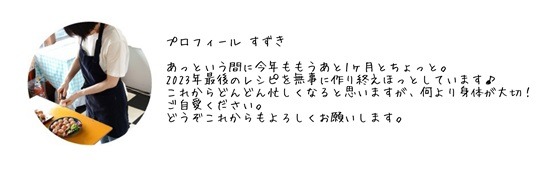 プロフィール すずき
あっという間に今年ももうあと1ヶ月とちょっと。
2023年最後のレシピを無事に作り終えほっとしています♪
これからどんどん忙しくなると思いますが、何より身体が大切！
ご自愛ください。
どうぞこれからもよろしくお願いします。